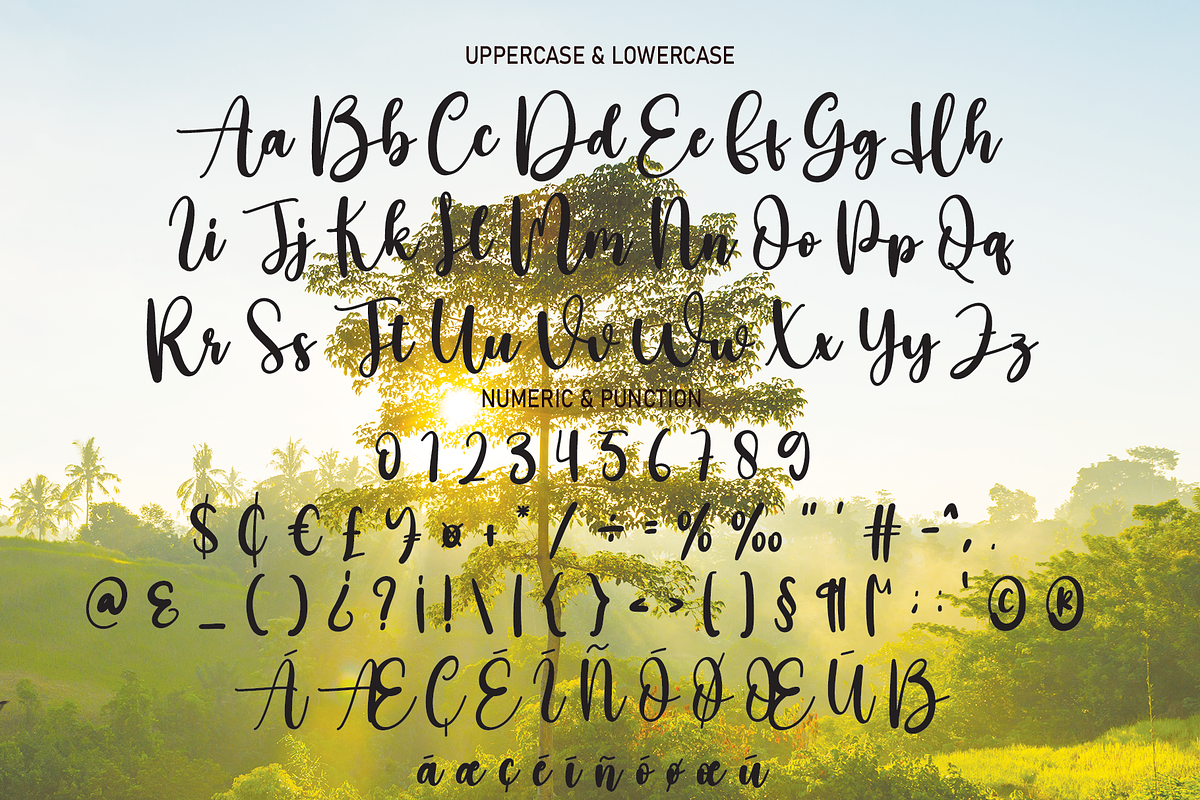 UPPERCASE & LOWERCASE
Aa Bb Cc Dd Ee Ff Gg Hh
Ii Jj Kk Ll Mm Nn Oo Pp Qq
Rr Ss Tt Uu Vv Ww Xx Yy Zz
NUMERIC & PUNCTION
0 1 2 3 4 5 6 7 8 9
$ ¢ € £ ¥ ¤ + * / ÷ = % ‰ " ' # - ^ , .
@ & _ ( ) ¿ ? ¡ ! \ | { } < > [ ] § ¶ ; : ' © ®
Á Æ Ç É Í Ñ Ó Ø Œ Ú ß
á æ ç é í ñ ó ø œ ú